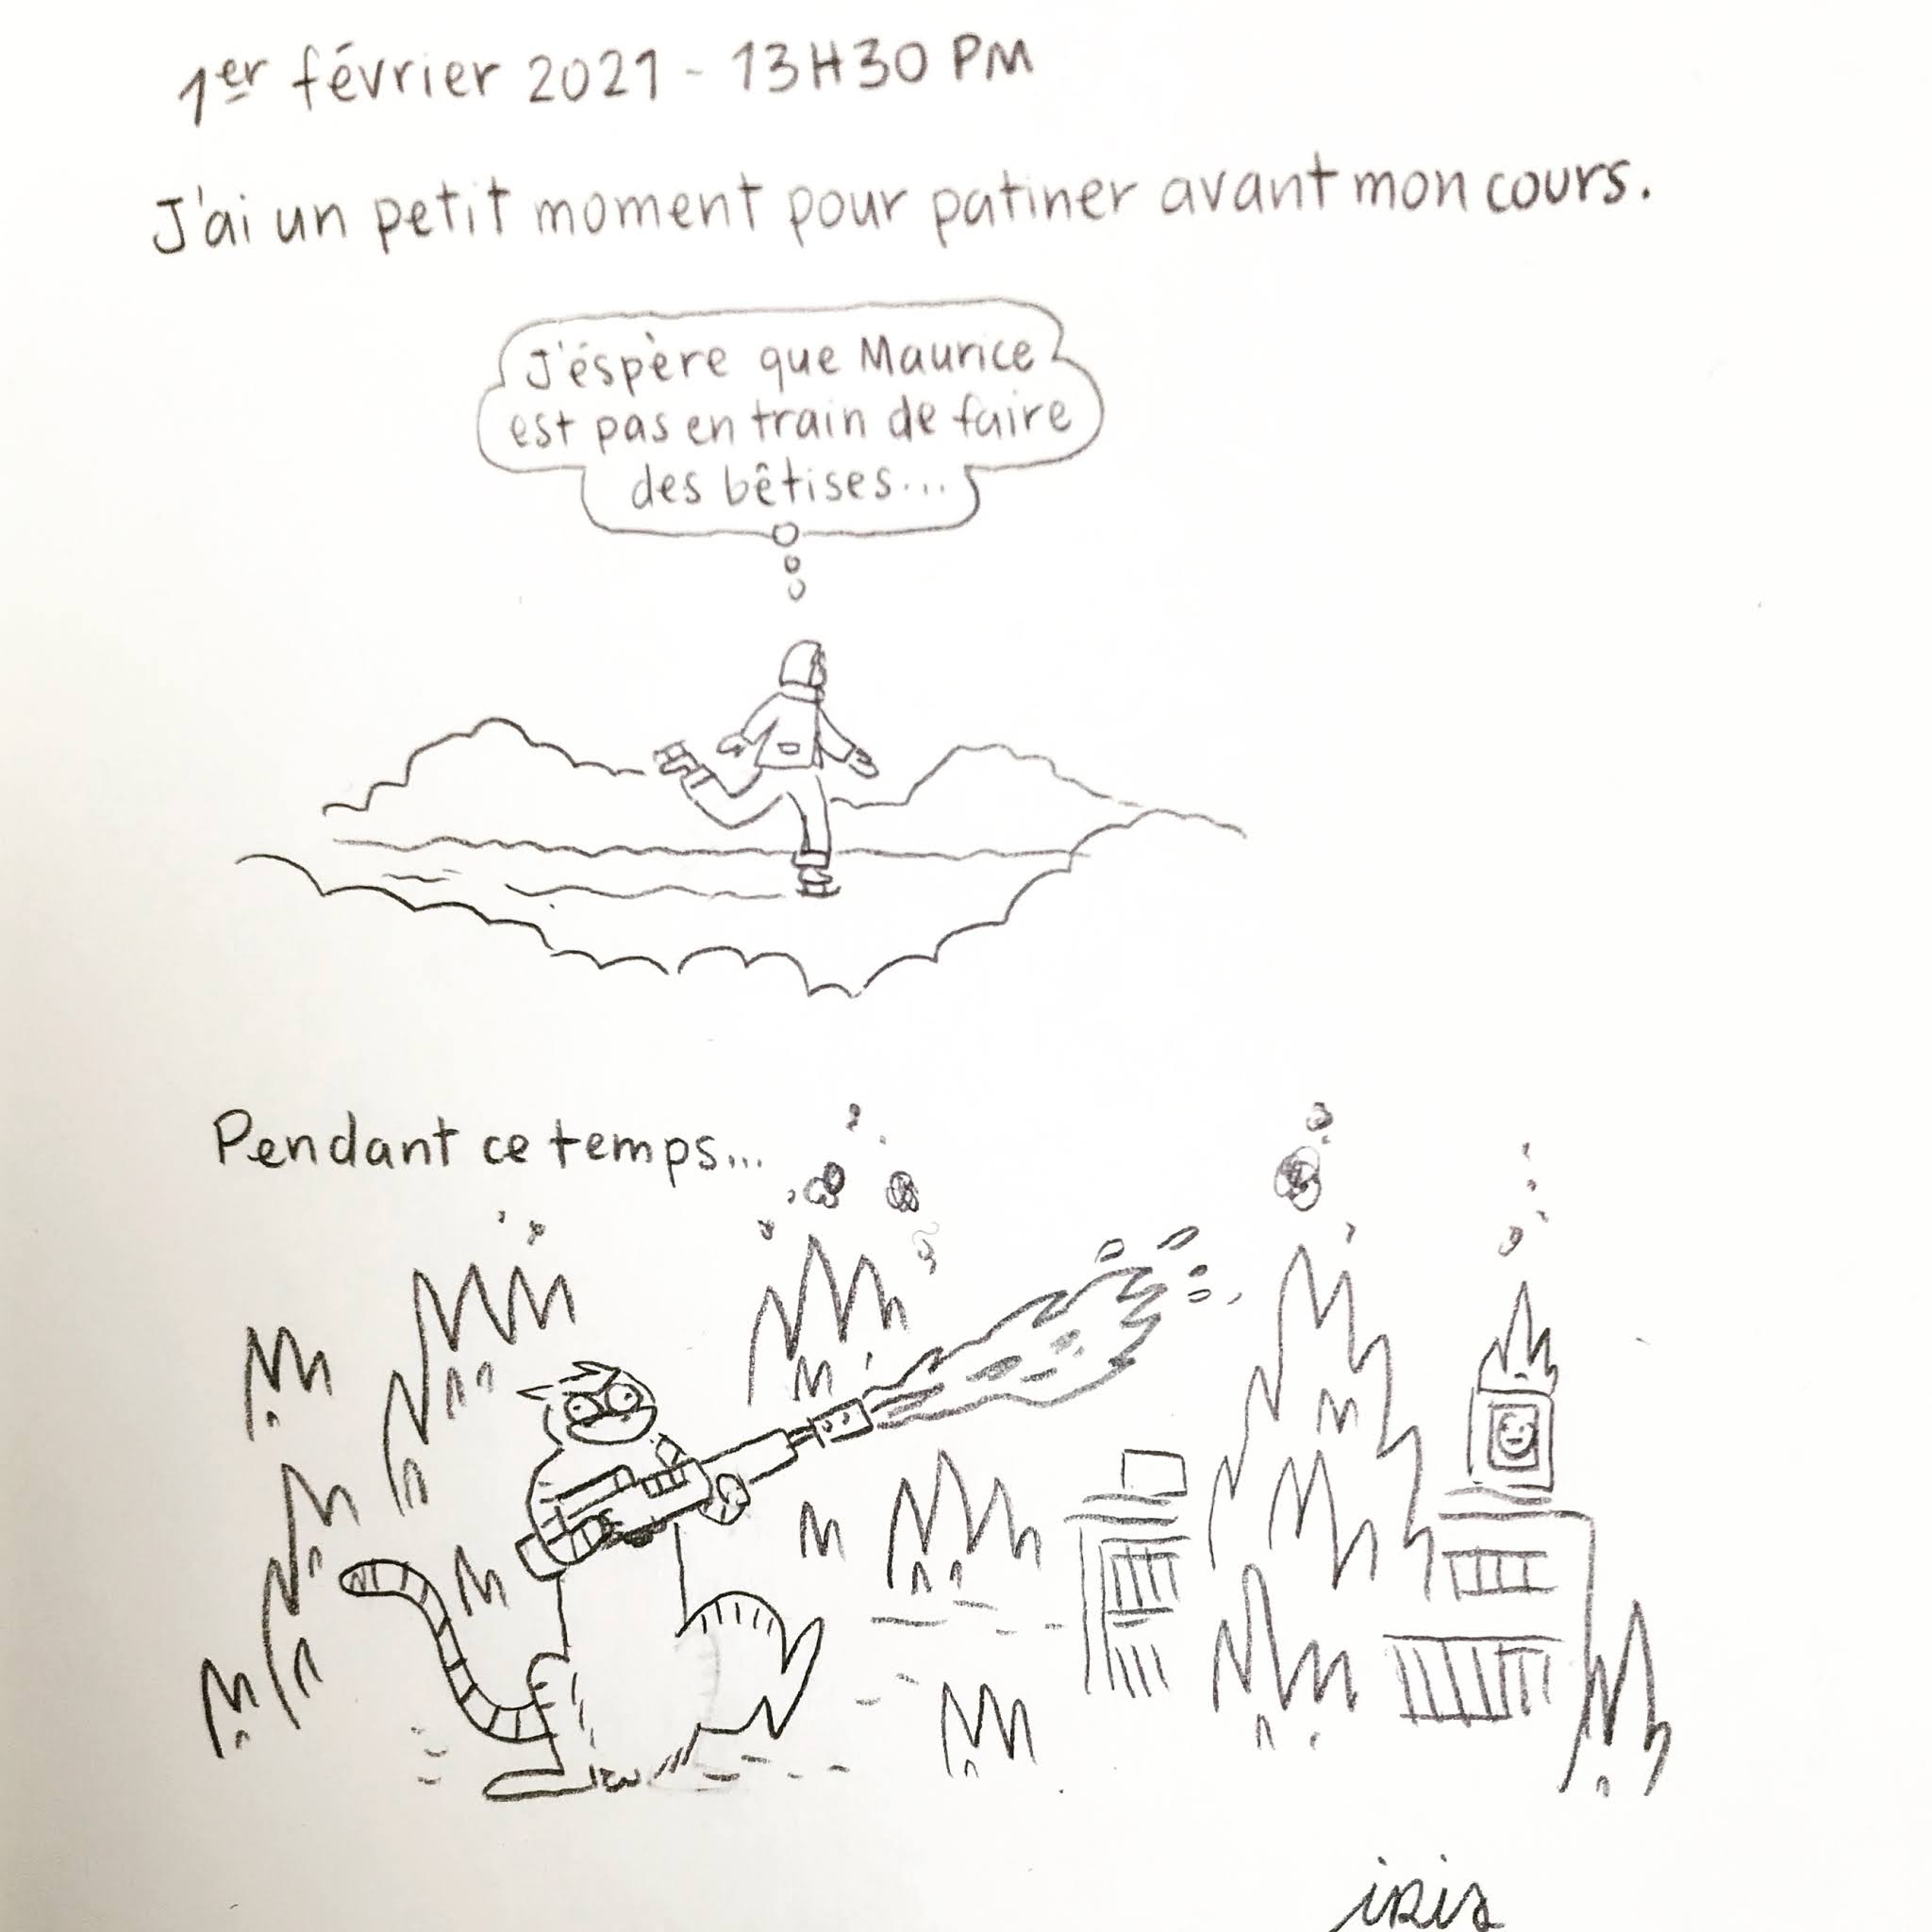 1er février 2021 - 13H30 PM
J'ai un petit moment pour patiner avant mon cours.
J'éspère que Maurice
est pas en train de faire
des bêtises...
Pendant ce temps...
iris